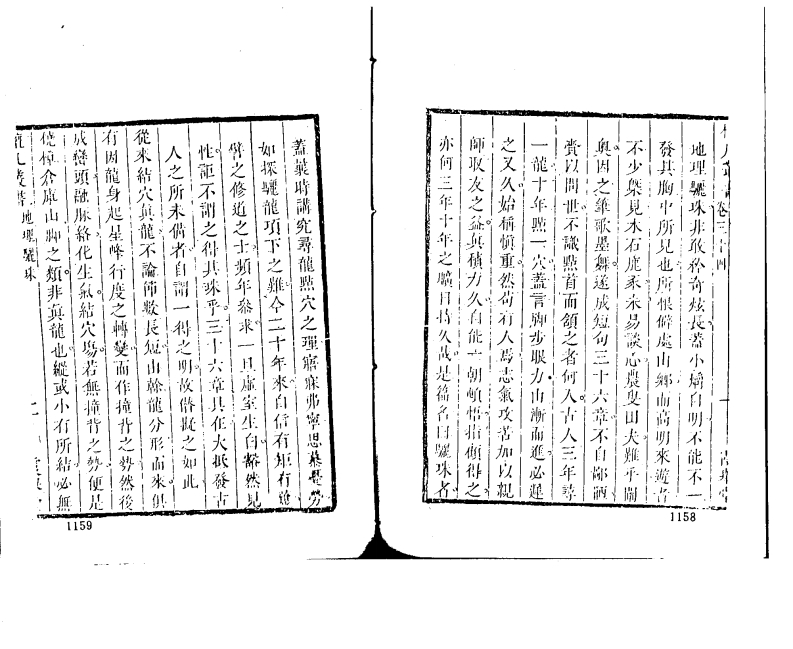 卷三十四
地理驪珠非敢矜奇炫長蓋小燭自明不能不一
發其胸中所見也所恨僻處山鄉而高明來遊者
不少槩見木石鹿豕未易談心農叟田夫難乎闡
奧因之筆歌墨舞遂成短句三十六章不自鄙陋
賫以問世不識點首而頷之者何人古人三年尋
一龍十年點一穴蓋言脚步眼力由漸而進必遲
之又久始稱慎重然苟有人焉志氣攻苦加以親
師取友之益眞積力久自能一朝頓悟指顧得之
亦何三年十年之曠日持久哉是篇名曰驪珠者
1158
蓋曩時講究尋龍點穴之理寤寐弗寧思慕勞
如探驪龍項下之難今二十年來自信有矩有
譬之修道之士頻年參求一旦虛室生白豁然見
性詎不謂之得其珠乎三十六章具在大抵發古
人之所未備者自謂一得之明故僭擬之如此
從來結穴眞龍不論節數長短山幹龍分形而來俱
有因龍身起星峰行度之轉變而作撞背之勢然後
成巒頭融脉絡化生氣結穴塲若無撞背之勢便是
倉庫山脚之類非眞龍也縱或小有所結必無
叢書 地理驪珠
1159